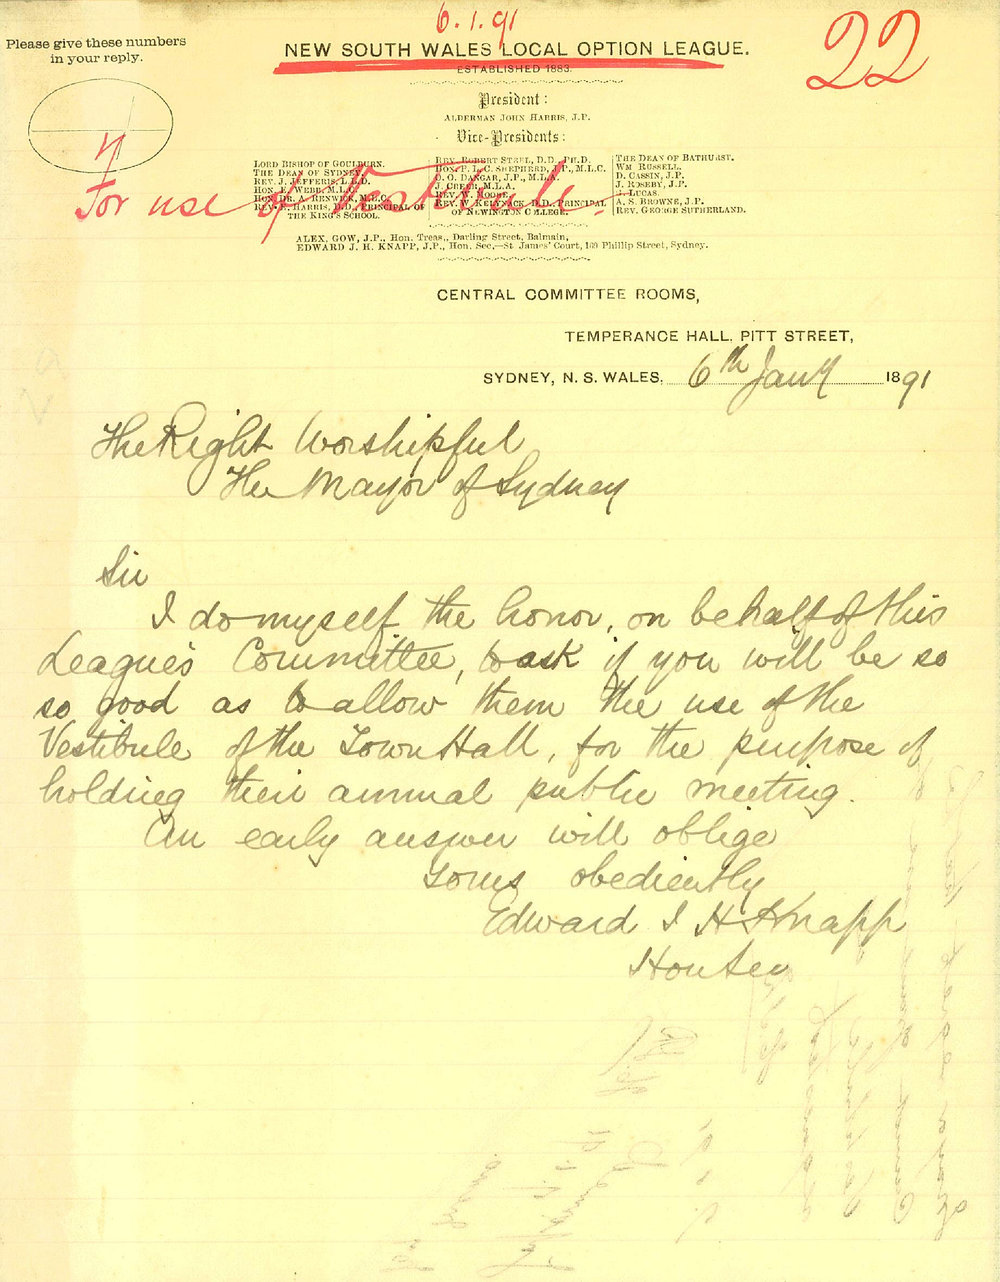 6.1.91
22
Please give these numbers
in your reply.
NEW SOUTH WALES LOCAL OPTION LEAGUE.
ESTABLISHED 1883.
President:
ALDERMAN JOHN HARRIS, J.P.
Vice-Presidents:
LORD BISHOP OF GOULBURN.
THE DEAN OF SYDNEY.
REV. J. JEFFERIS, LL.D.
HON. E. WEBB, M.L.C.
HON. DR. A. RENWICK, M.L.C.
REV. E. HARRIS, D.D., PRINCIPAL OF
THE KING'S SCHOOL.
REV. ROBERT STEEL, D.D., PH.D.
HON. P. L. C. SHEPHERD, J.P., M.L.C.
O. O. DANGAR, J.P., M.L.A.
J. CREER, M.L.A.
REV. W. MOORE.
REV. W. KELYNACK, D.D., PRINCIPAL
OF NEWINGTON COLLEGE.
THE DEAN OF BATHURST.
WM RUSSELL.
D. CASSIN, J.P.
J. ROSEBY, J.P.
J. LUCAS.
A. S. BROWNE, J.P.
REV. GEORGE SUTHERLAND.
For use of Vestibule.
ALEX. GOW, J.P., Hon. Treas., Darling Street, Balmain,
EDWARD J. H. KNAPP, J.P., Hon. Sec,—St. James' Court, 169 Phillip Street, Sydney.
CENTRAL COMMITTEE ROOMS,
TEMPERANCE HALL. PITT STREET,
SYDNEY, N. S. WALES, 6th Jany 1891
The Right Worshipful
The Mayor of Sydney
Sir
I do myself the honor, on behalf of this
League's Committee, to ask if you will be so
so good as to allow them the use of the
Vestibule of the Town Hall, for the purpose of
holding their annual public meeting.
An early answer will oblige
Yours obediently
Edward J H Knapp
Hon Sec